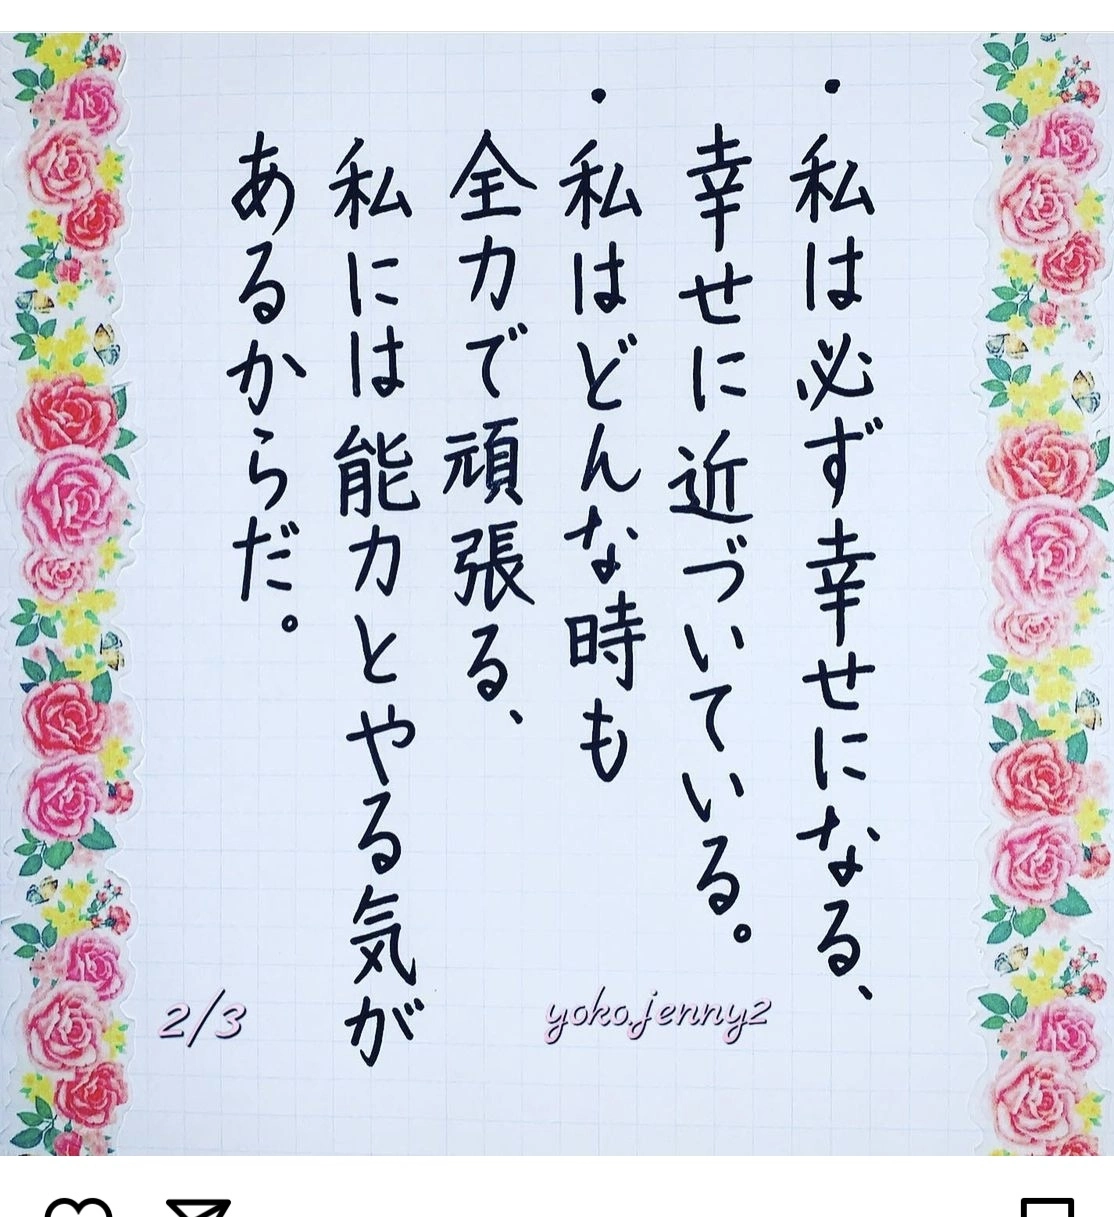 ・私は必ず幸せになる、
幸せに近づいている。
・私はどんな時も
全力で頑張る、
私には能力とやる気が
あるからだ。
2/3
yoko.jenny2